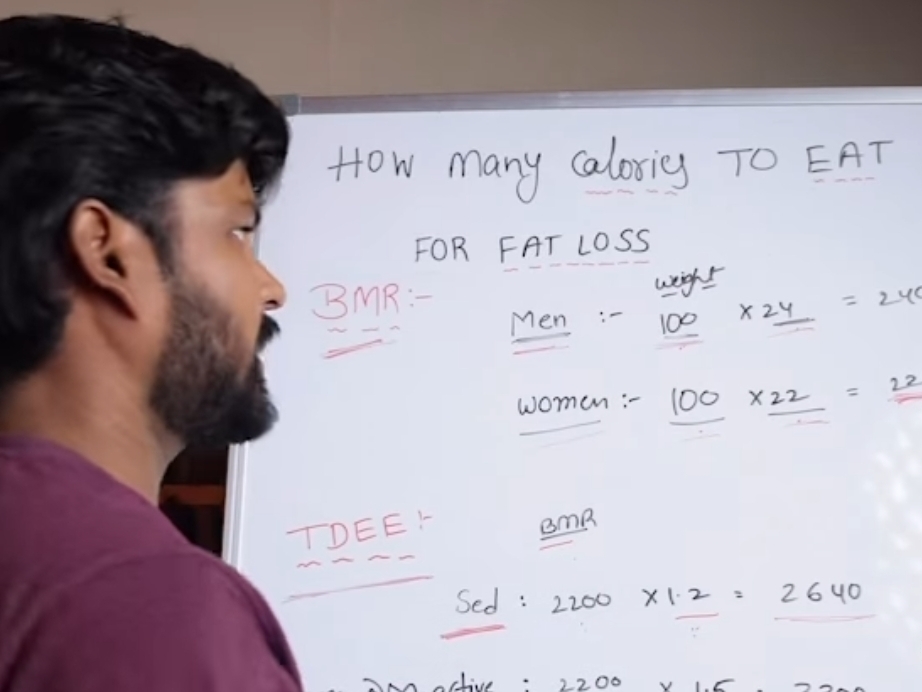 HOW many calories TO EAT
FOR FAT LOSS
BMR:-
weight
Men :- 100 x 24 = 240
women :- 100 x 22 = 22
TDEE:-
BMR
Sed : 2200 x 1.2 = 2640
active : 2200 x 1.5